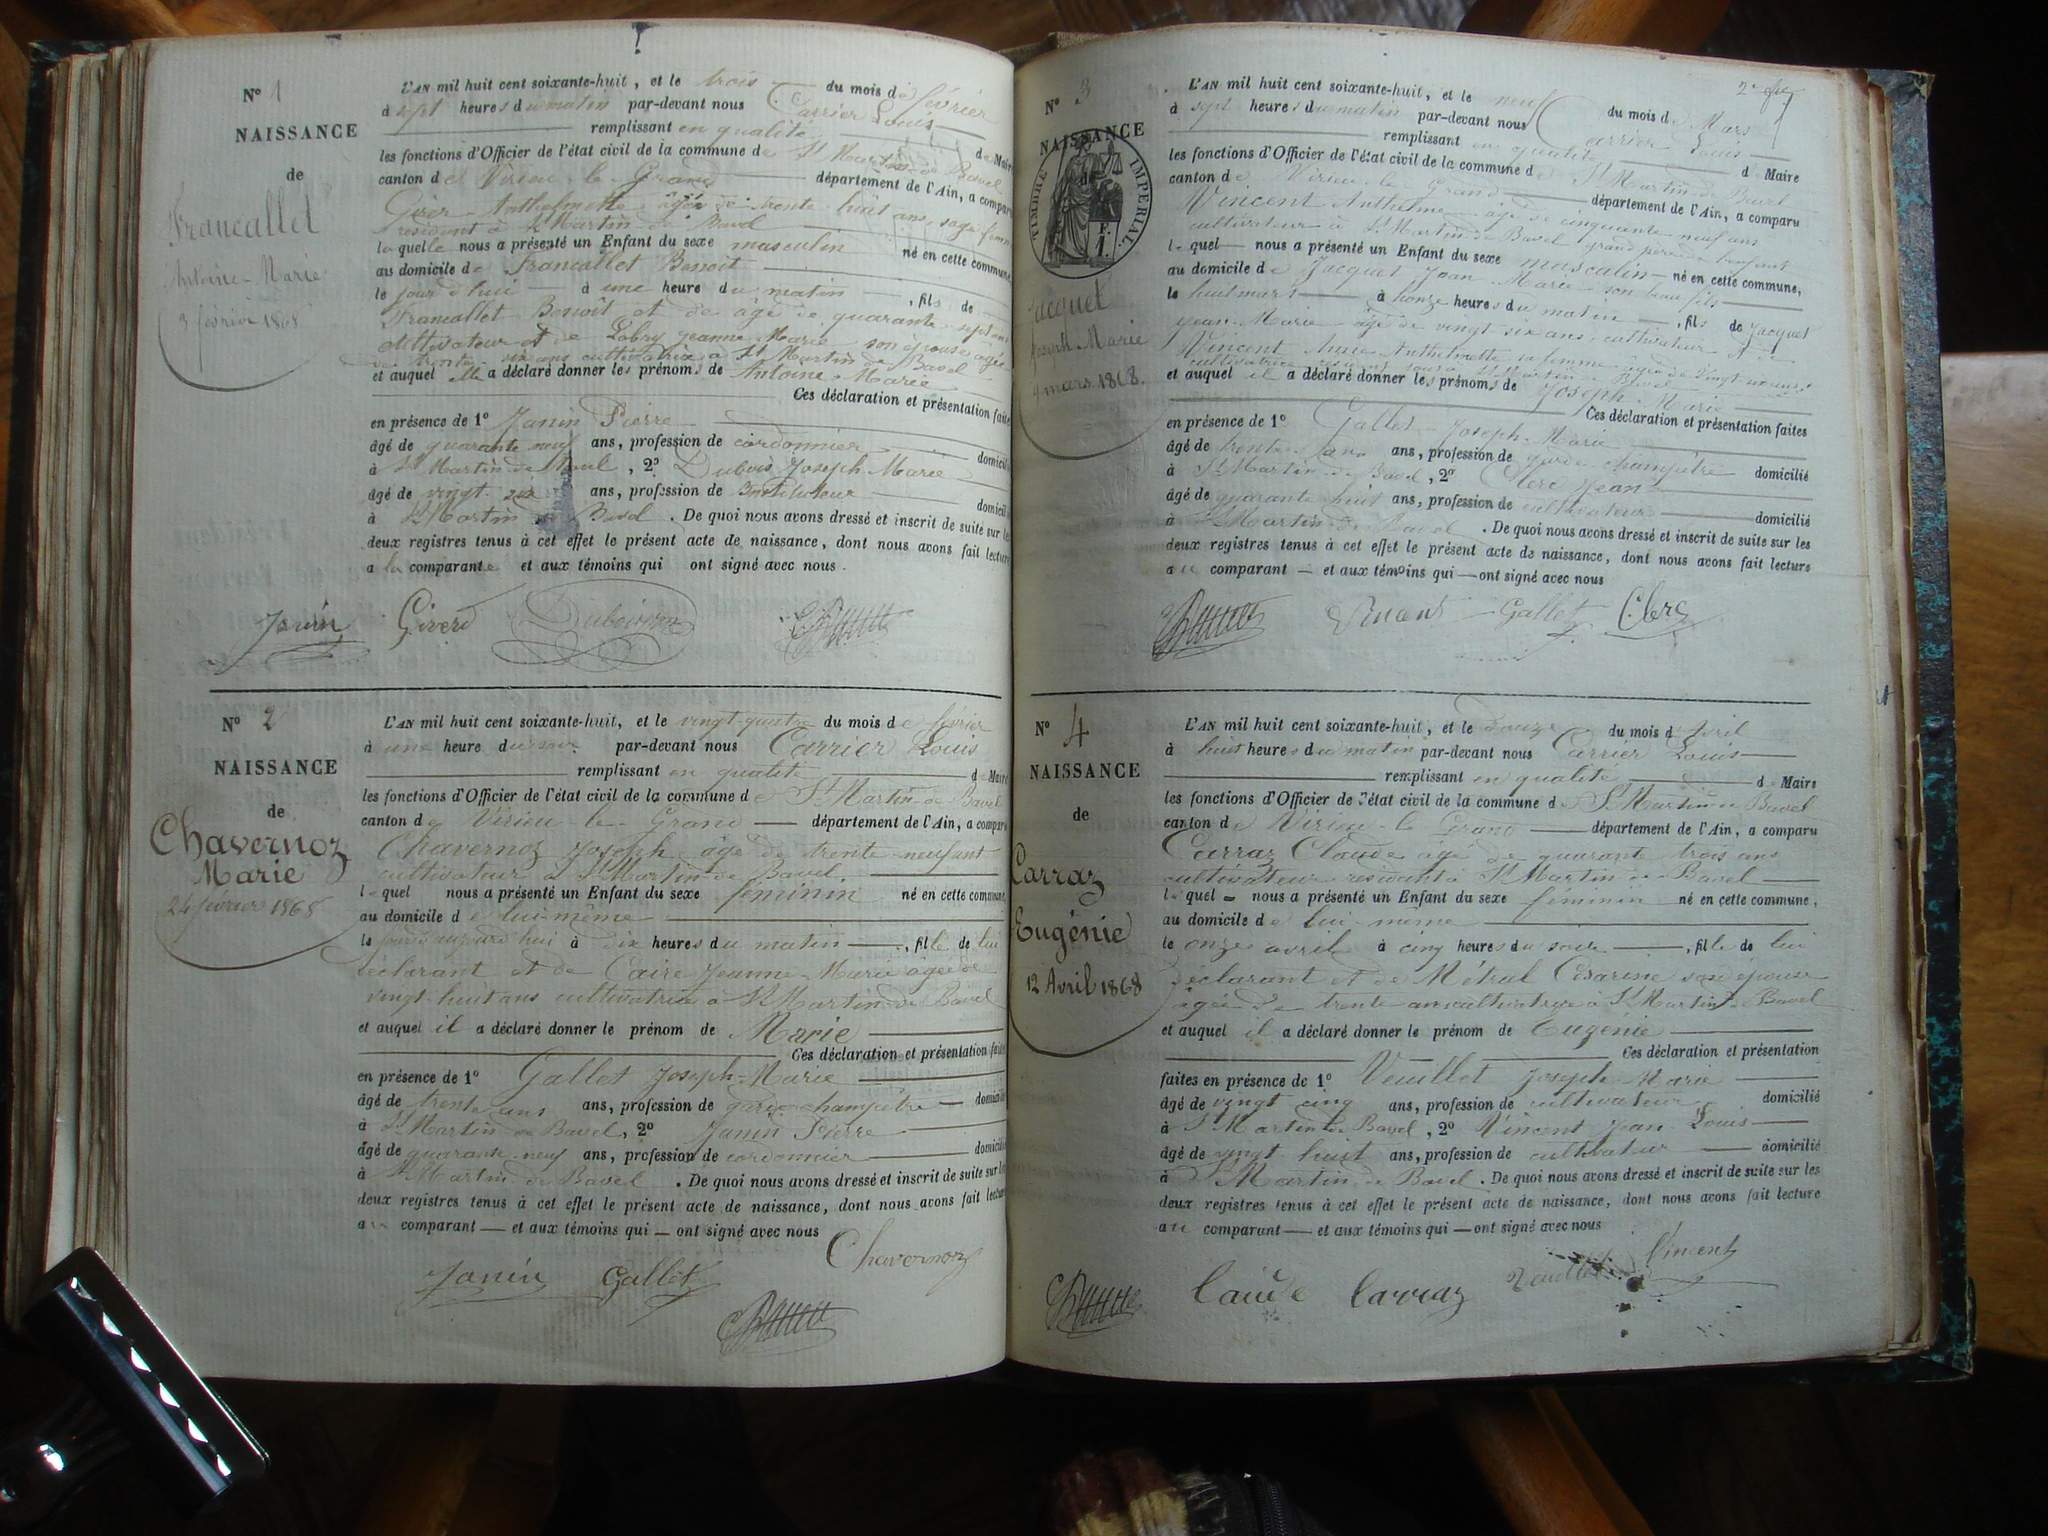 N° 1
NAISSANCE
de
Francallet
Antoine-Marie
3 février 1868
L'AN mil huit cent soixante-huit, et le trois du mois de février
à sept heures du matin par-devant nous Carrier Louis
remplissant en qualité de Maire
les fonctions d'Officier de l'état civil de la commune de St Martin de Bavel
canton de Virieu-le-Grand département de l'Ain, a comparu
Anthelmette âgée de trente huit ans, sage femme
résident à St Martin de Bavel
laquelle nous a présenté un Enfant du sexe masculin né en cette commune,
au domicile de Francallet Benoit
le jour d'hui à une heure du matin, fils de
Francallet Benoît et de âgé de quarante-sept ans
cultivateur et de Lobry Jeanne Marie son épouse âgée
de trente-six ans cultivatrice à St Martin de Bavel
et auquel elle a déclaré donner les prénoms de Antoine-Marie
Ces déclaration et présentation faites
en présence de 1° Janin Pierre
âgé de quarante neuf ans, profession de cordonnier domicilié
à St Martin de Bavel, 2° Dubois Joseph-Marie
âgé de vingt ans, profession de Instituteur domicilié
à St Martin de Bavel. De quoi nous avons dressé et inscrit de suite sur les
deux registres tenus à cet effet le présent acte de naissance, dont nous avons fait lecture
a la comparante et aux témoins qui ont signé avec nous.
Janin
N° 2
NAISSANCE
de
Chavernoz
Marie
24 février 1868
L'AN mil huit cent soixante-huit, et le vingt-quatre du mois de février
à une heure du soir par-devant nous Carrier Louis
remplissant en qualité de Maire
les fonctions d'Officier de l'état civil de la commune de St Martin-de-Bavel
canton de Virieu-le-Grand département de l'Ain, a comparu
Chavernoz Joseph âgé de trente-neuf ans
cultivateur à St Martin-de-Bavel
lequel nous a présenté un Enfant du sexe féminin né en cette commune,
au domicile de lui-même
le jour d'aujourd'hui à dix heures du matin, fille de lui
déclarant et de Caire Jeanne-Marie âgée de
vingt-huit ans cultivatrice à St Martin-de-Bavel
et auquel il a déclaré donner le prénom de Marie
Ces déclaration et présentation faites
en présence de 1° Gallet Joseph-Marie
âgé de trente ans ans, profession de garde-champêtre domicilié
à St Martin de Bavel, 2° Janin Pierre
âgé de quarante-neuf ans, profession de cordonnier domicilié
à St Martin de Bavel. De quoi nous avons dressé et inscrit de suite sur les
deux registres tenus à cet effet le présent acte de naissance, dont nous avons fait lecture
au comparant et aux témoins qui ont signé avec nous
Chavernoz
Janin Gallet
N° 3
NAISSANCE
de
TIMBRE IMPÉRIAL
F. 1.
Jacquet
Joseph-Marie
9 mars 1868.
L'AN mil huit cent soixante-huit, et le neuf du mois de Mars
à sept heures du matin par-devant nous Carrier Louis
remplissant en qualité de Maire
les fonctions d'Officier de l'état civil de la commune de St Martin de Bavel
canton de Virieu-le-Grand département de l'Ain, a comparu
Vincent Anthelme âgé de cinquante neuf ans
cultivateur à St Martin de Bavel grand père de l'enfant
lequel nous a présenté un Enfant du sexe masculin né en cette commune,
au domicile de Jacquet Jean-Marie son beau fils
le huit mars à honze heures du matin, fils de Jacquet
Jean-Marie âgé de vingt six ans, cultivateur et de
Vincent Anthelmette sa femme âgée de vingt
cultivatrice St Martin de Bavel
et auquel il a déclaré donner les prénoms de Joseph-Marie
Ces déclaration et présentation faites
en présence de 1° Gallet Joseph-Marie
âgé de trente ans ans, profession de garde-champêtre domicilié
à St Martin de Bavel, 2° Clerc Jean
âgé de quarante huit ans, profession de cultivateur domicilié
à St Martin de Bavel. De quoi nous avons dressé et inscrit de suite sur les
deux registres tenus à cet effet le présent acte de naissance, dont nous avons fait lecture
au comparant et aux témoins qui ont signé avec nous
Vincent Gallet Clerc
N° 4
NAISSANCE
de
Carraz
Eugénie
12 Avril 1868
L'AN mil huit cent soixante-huit, et le douze du mois d'Avril
à huit heures du matin par-devant nous Carrier Louis
remplissant en qualité de Maire
les fonctions d'Officier de l'état civil de la commune de St Martin de Bavel
canton de Virieu-le-Grand département de l'Ain, a comparu
Carraz Claude âgé de quarante trois ans
cultivateur résidant à St Martin de Bavel
lequel nous a présenté un Enfant du sexe féminin né en cette commune,
au domicile de lui-même
le onze avril à cinq heures du soir, fille de lui
déclarant et de Métral Césarine son épouse
âgée de trente ans cultivatrice à St Martin de Bavel
et auquel il a déclaré donner le prénom de Eugénie
Ces déclaration et présentation
faites en présence de 1° Veuillet Joseph Marie
âgé de vingt cinq ans, profession de cultivateur domicilié
à St Martin de Bavel, 2° Vincent Jean Louis
âgé de vingt huit ans, profession de cultivateur domicilié
à St Martin de Bavel. De quoi nous avons dressé et inscrit de suite sur les
deux registres tenus à cet effet le présent acte de naissance, dont nous avons fait lecture
au comparant et aux témoins qui ont signé avec nous
Claude Carraz Veuillet Vincent